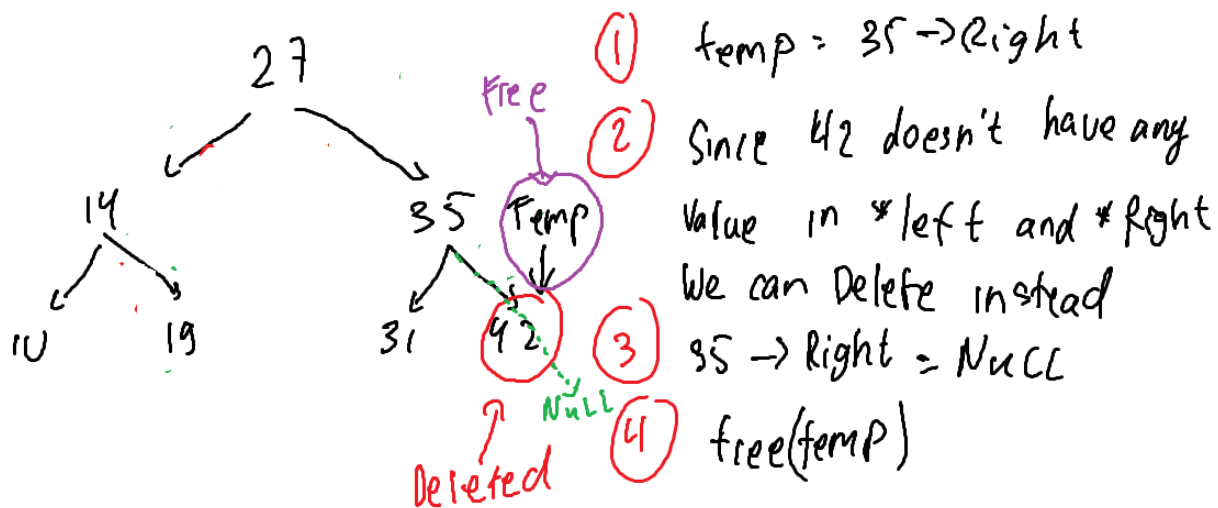 27
Free
14
35
Temp
10
19
31
42
NULL
Deleted
1 temp = 35 -> Right
2 Since 42 doesn't have any
Value in *left and *Right
We can Delete instead
3 35 -> Right = NULL
4 free(temp)